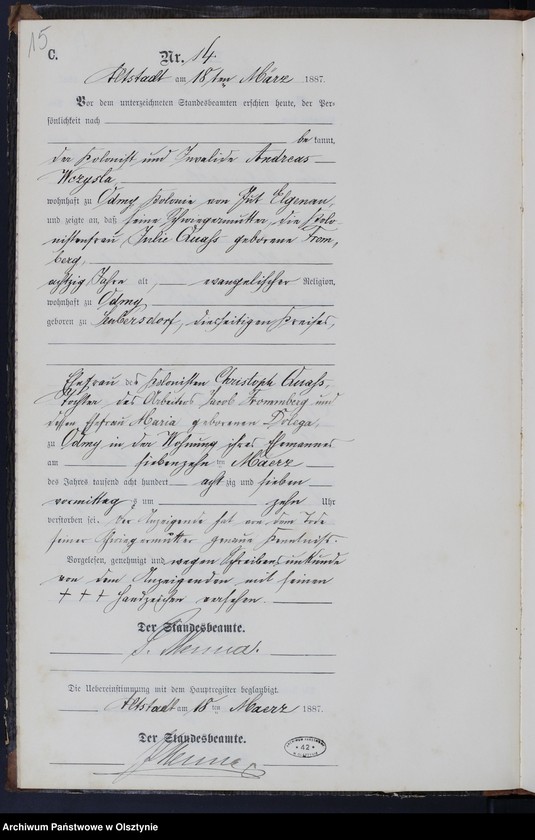 15
C.
Nr. 14.
Altstadt am 18ten März 1887.
Vor dem unterzeichneten Standesbeamten erschien heute, der Per-
sönlichkeit nach
be kannt,
der Kolonist und Invalide Andreas
Wozysla,
wohnhaft zu Odmy Kolonie von Gut Elgenau,
und zeigte an, daß seine Schwiegermutter, die Kolo-
nistenfrau, Julie Quaß geborene From,
berg,
achtzig Jahre alt, evangelischer Religion,
wohnhaft zu Odmy
geboren zu diesseitigen Kreises,
Ehefrau des Kolonisten Christoph Quaß,
Tochter des Arbeiters Jacob Frommberg und
dessen Ehefrau Maria geborenen Dolega,
zu Odmy in der Wohnung ihres Ehemannes
am siebenzehn ten Maerz
des Jahres tausend acht hundert acht zig und sieben
vormittags um zehn Uhr
verstorben sei. Der Anzeigende hat von dem Tode
seiner Schwiegermutter genaue Kenntniß.
Vorgelesen, genehmigt und wegen Schreibensunkunde
von dem Anzeigenden mit seinen
+ + + Handzeichen versehen.
Der Standesbeamte.
Die Uebereinstimmung mit dem Hauptregister beglaubigt.
Altstadt am 18 ten Maerz 1887.
Der Standesbeamte.
42
Archiwum Państwowe w Olsztynie